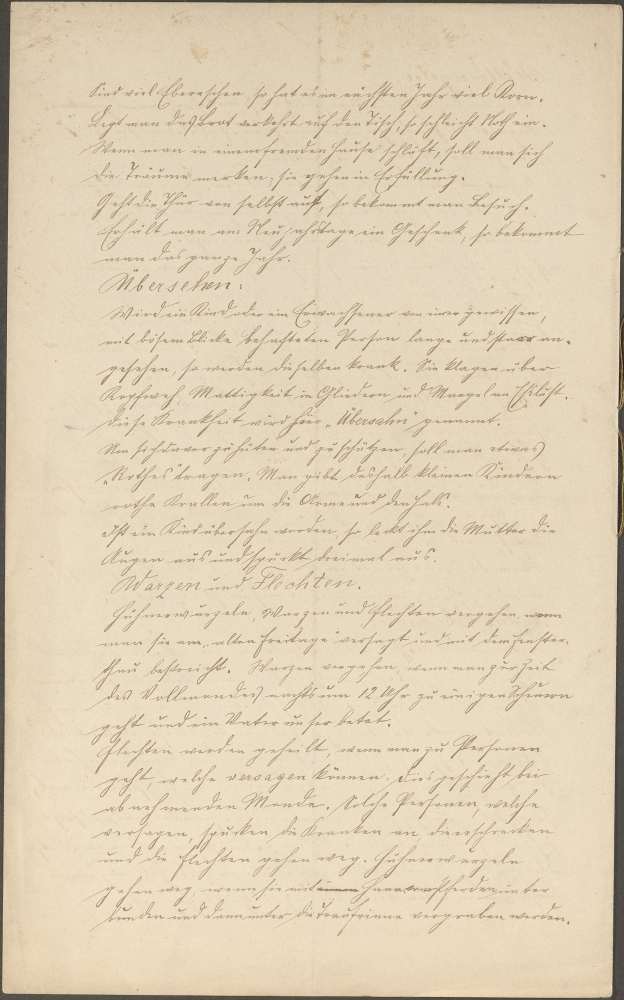 Sind viel Ebereschen, so hat es im nächsten Jahr viel Korn.
Legt man das Brot verkehrt auf den Tisch, so schleicht Noth ein.
Wenn man in einem fremden Hause schläft, soll man sich
die Träume merken; sie gehen in Erfüllung.
Geht die Thür von selbst auf, so bekommt man Besuch.
Erhält man am Neujahrstage ein Geschenk, so bekommt
man das ganze Jahr.
Übersehen:
Wird ein Kind oder ein Erwachsener von einer gewissen,
mit bösem Blicke behafteten Person lange und starr an-
gesehen, so werden dieselben krank. Sie klagen über
Kopfweh, Mattigkeit in Gliedern und Mangel an Eßlust.
Diese Krankheit wird hier „Übersehn" genannt.
Um sich davor zu hüten und zu schützen, soll man etwas
„Rothes" tragen. Man gibt deshalb kleinen Kindern
rothe Krallen um die Arme und den Hals.
Ist ein Kind übersehn worden, so leckt ihm die Mutter die
Augen aus und spuckt dreimal aus.
Warzen und Flechten.
Hühnerwurzeln, Warzen und Flechten vergehen, wenn
man sie am „alten Freitage" versagt und mit dem Fenster-
thau bestreicht. Warzen vergehen, wenn man zur Zeit
des Vollmondes nachts um 12 Uhr zu einigen Scheunen
geht und ein Vater unser betet.
Flechten werden geheilt, wenn man zu Personen
geht, welche versagen können. Dies geschieht bei
abnehmenden Monde. Solche Personen, welche
versagen, spucken die Kranken an, die erschrecken
und die Flechten gehen weg. Hühnerwurzeln
gehen weg, wenn sie mit Haar vom Pferde unter
bunden und dann unter die Traufrinne vergraben werden.